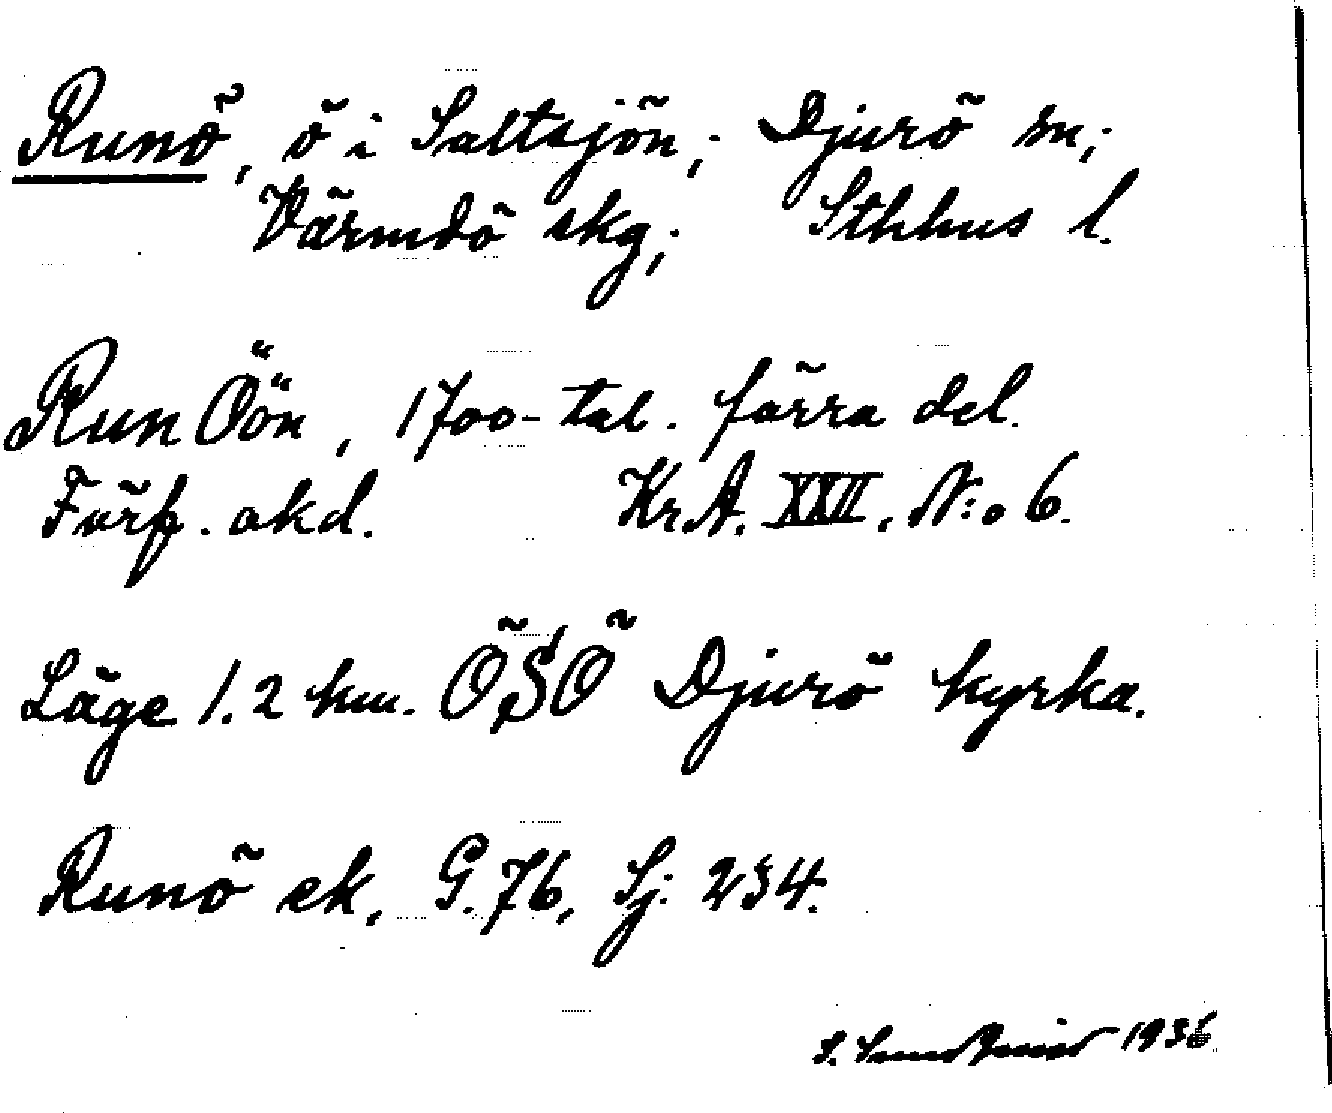 Runö, ö i Saltsjön; Djurö sn;
Värmdö skg; Sthlms l.
Run Öön, 1700-tal. förra del.
Förf. okd. Kr.A. XXII. N:o 6.
Läge 1.2 km. ÖSÖ Djurö kyrka.
Runö ek, G. 76, Sj: 234.
S. 1936